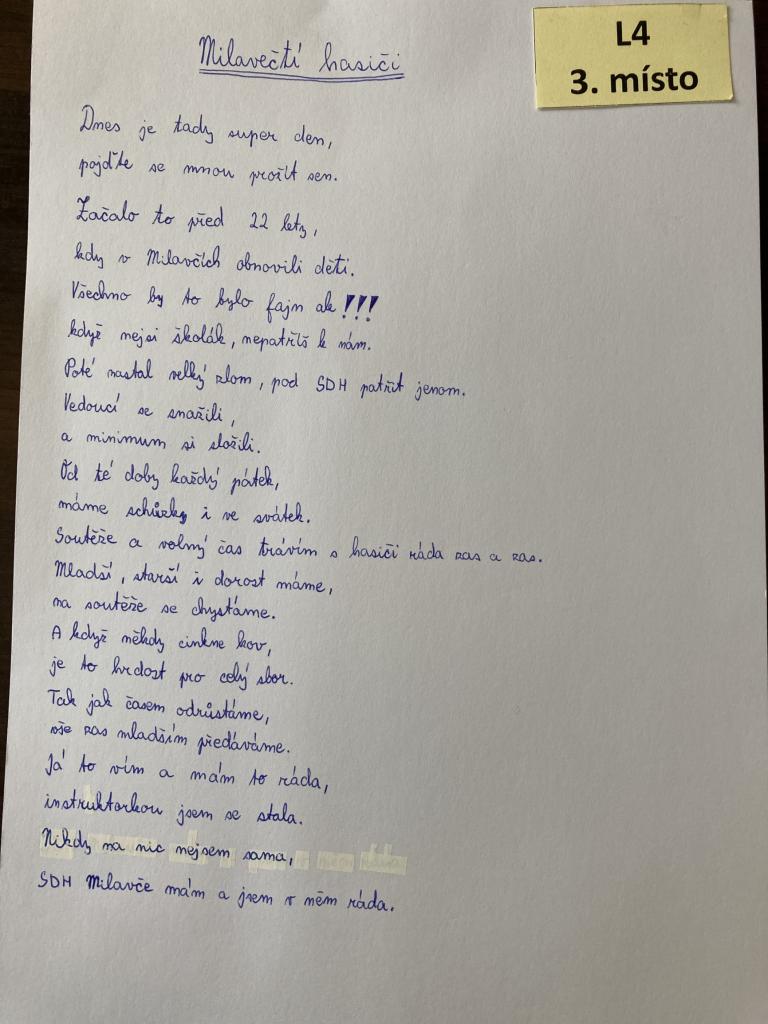 L4
3. místo
Milavečtí hasiči
Dnes je tady super den,
pojďte se mnou prožít sen.
Začalo to před 22 lety,
kdy v Milavčích obnovili děti.
Všechno by to bylo fajn ale !!!
když nejsi školák, nepatříš k nám.
Poté nastal velký zlom, pod SDH patřit jenom.
Vedoucí se snažili,
a minimum si složili.
Od té doby každý pátek,
máme schůzky i ve svátek.
Soutěže a volný čas trávím s hasiči ráda zas a zas.
Mladší, starší i dorost máme,
na soutěže se chystáme.
A když někdy cinkne kov,
je to hrdost pro celý sbor.
Tak jak časem odrůstáme,
vše zas mladším předáváme.
Já to vím a mám to ráda,
instruktorkou jsem se stala.
Nikdy na nic nejsem sama,
SDH Milavče mám a jsem v něm ráda.